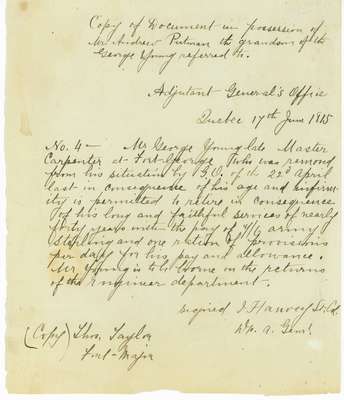 Copy of Document in possession of
Mr Andrew Putman the grandson of the
George Young referred to.
Adjutant General's Office
Quebec 17th June 1815
No. 4 - Mr George Young late Master
Carpenter at Fort-George who was removed
from his situation by G.O. of the 22d April
last in consequence of his age and infirm-
ity is permitted to retire in consequence
of his long and faithful services of nearly
forty years with the pay of army
sterling and one ration of provisions
per day for his pay and allowance.
Mr. Young is to be borne on the returns
of the engineer department.
signed J Harvey Lt. Col.
A. Genl
(Copy) Thos. Taylor
Fort-Major